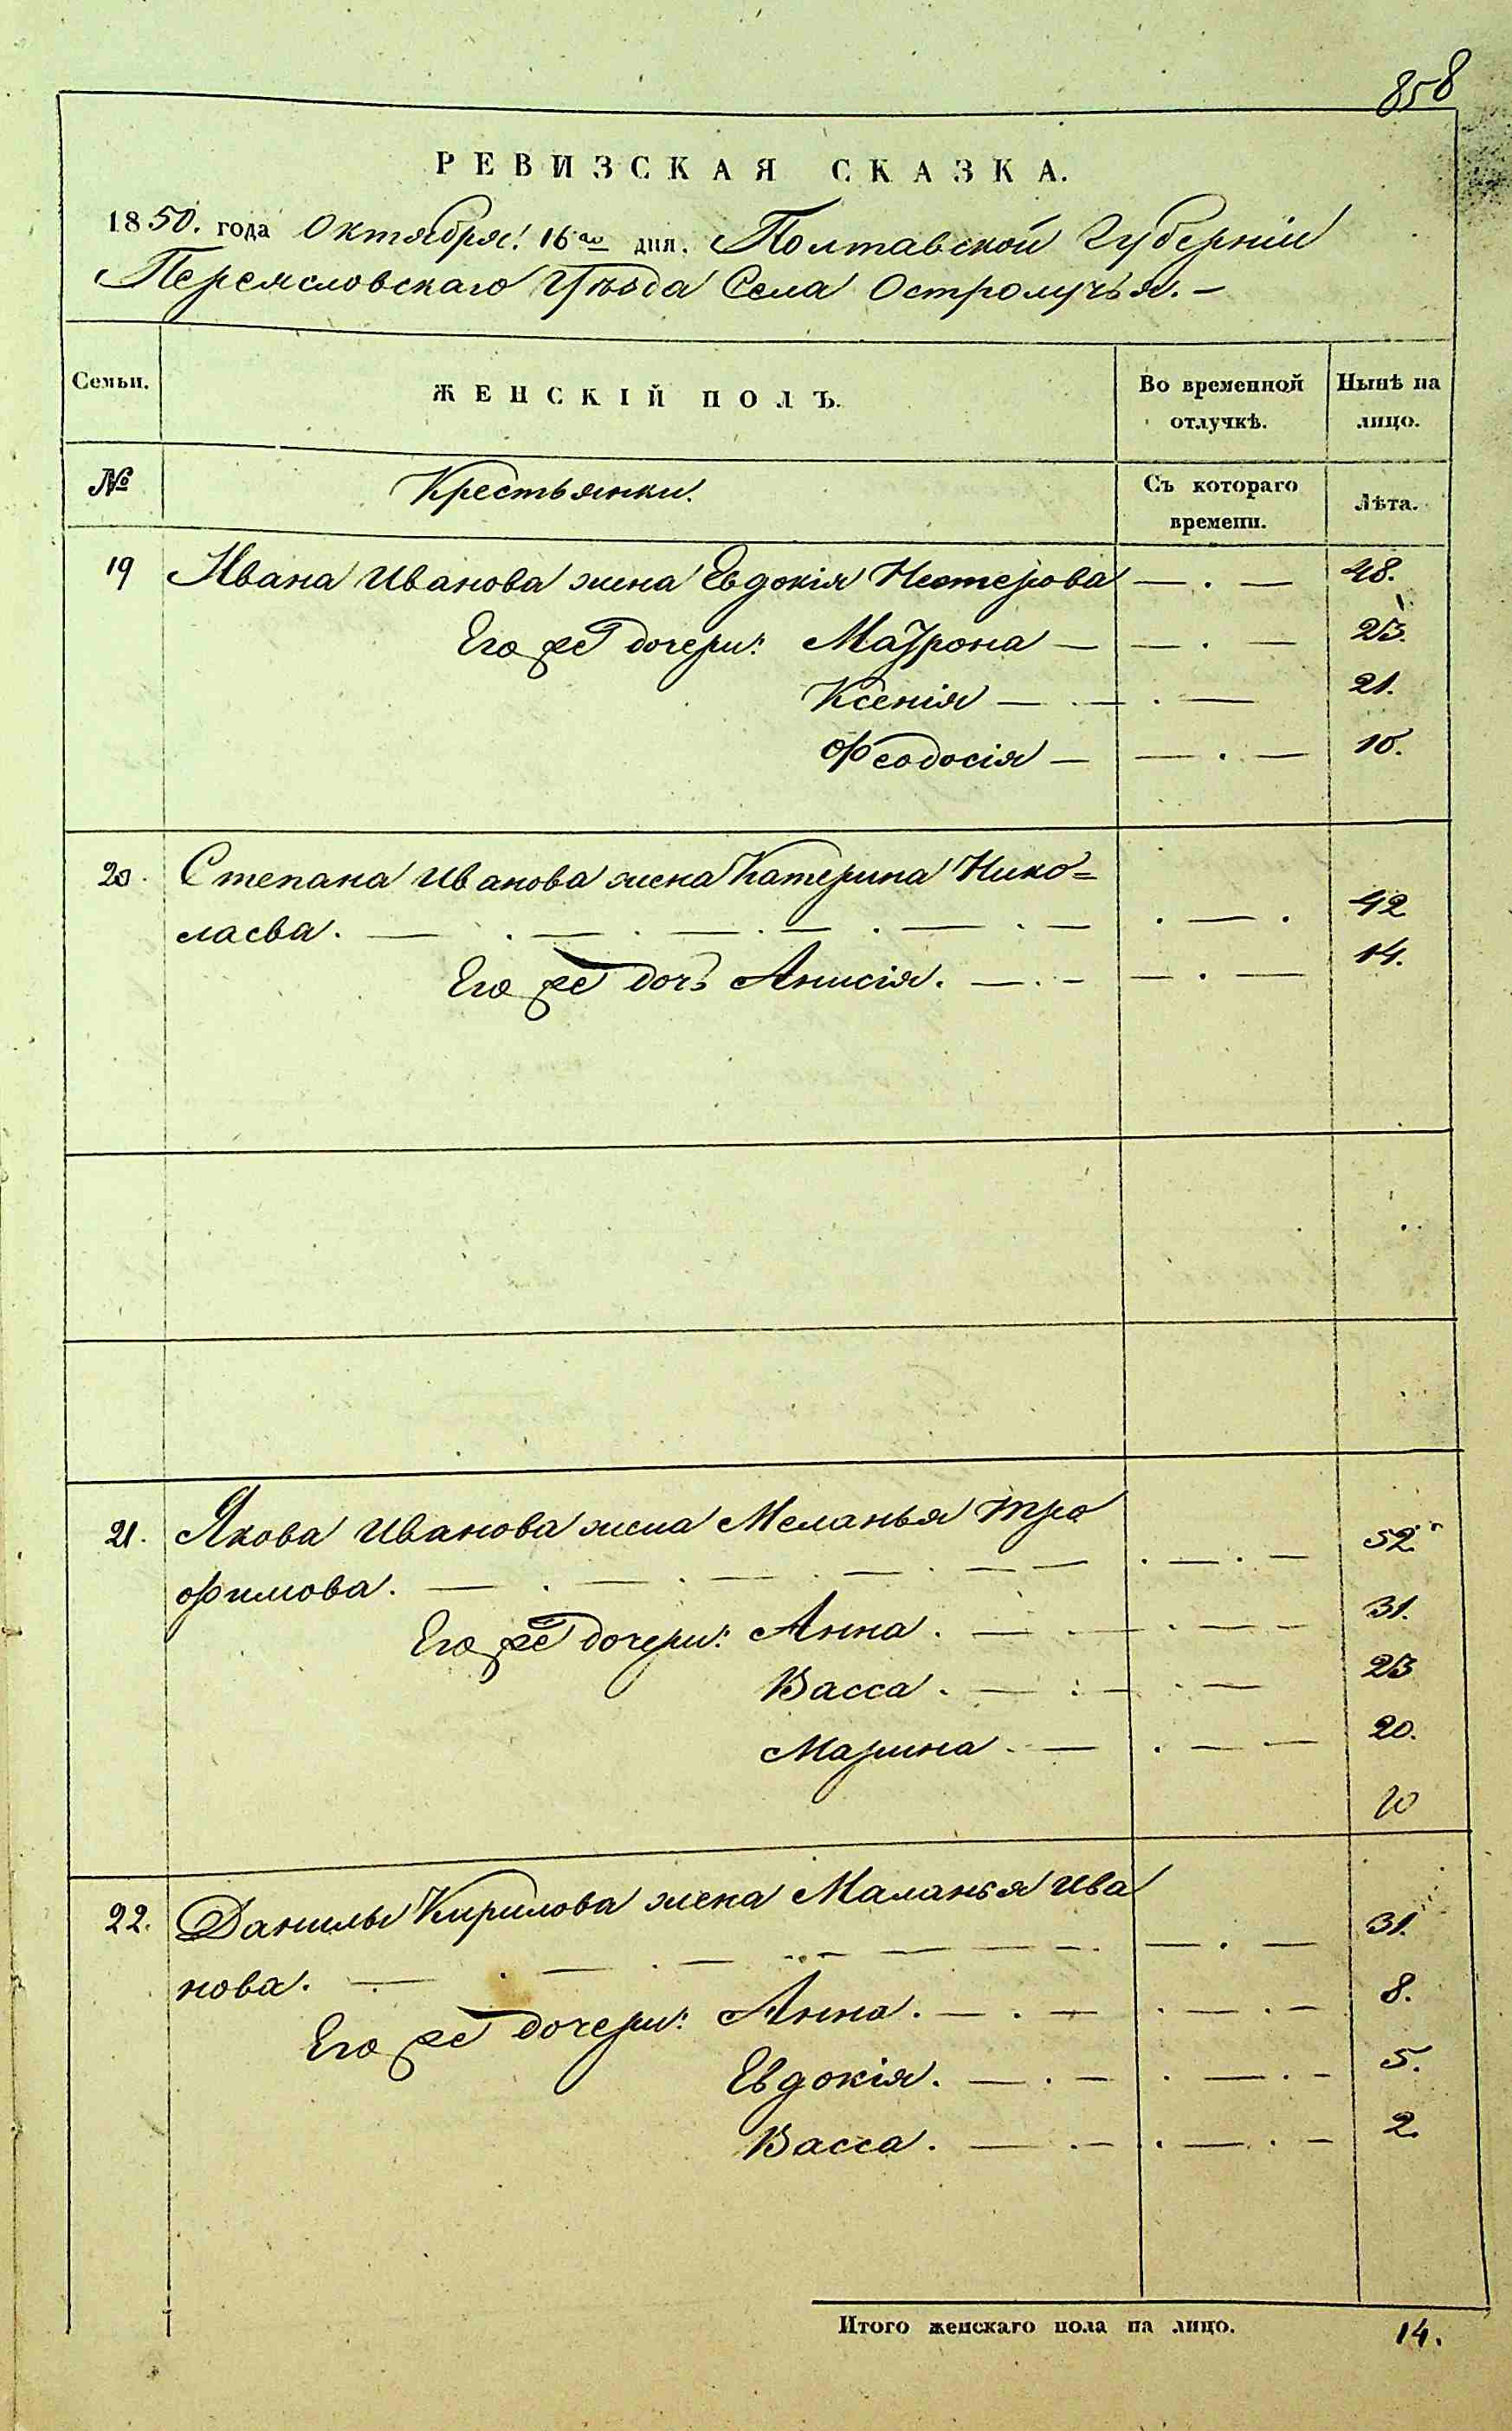 858
РЕВИЗСКАЯ СКАЗКА.
1850. года Октября 16го дня. Полтавской Губерніи
Переясловскаго Уѣзда Села Остролучья. —
Семьи. ЖЕНСКІЙ ПОЛЪ. Во временной отлучкѣ. Нынѣ на лицо.
№ Крестьянки. Съ котораго времени. Лѣта.
19 Ивана Иванова жена Евдокія Нестерова — . — 48.
Его же дочери: Матрона — — . — 23.
Ксенія — . — . — 21.
Феодосія — — . — 10.
20. Степана Иванова жена Катерина Нико=
лаева. — . — . — . — . — . — . — . 42
Его же дочь Анисія. — . — — . — 14.
21. Якова Иванова жена Меланья Тро
фимова. — . — . — . — . — — . — . — 52
Его же дочери: Анна. — . — . — 31.
Васса. — : — . — 23
Марина. — . — — 20.
22. Данилы Кирилова жена Маланья Ива
нова. — . — . — — . — 31.
Его же дочери: Анна. — . — . — . — 8.
Евдокія. — . — . — . — 5.
Васса. — . — . — . — 2.
Итого женскаго пола на лицо. 14.